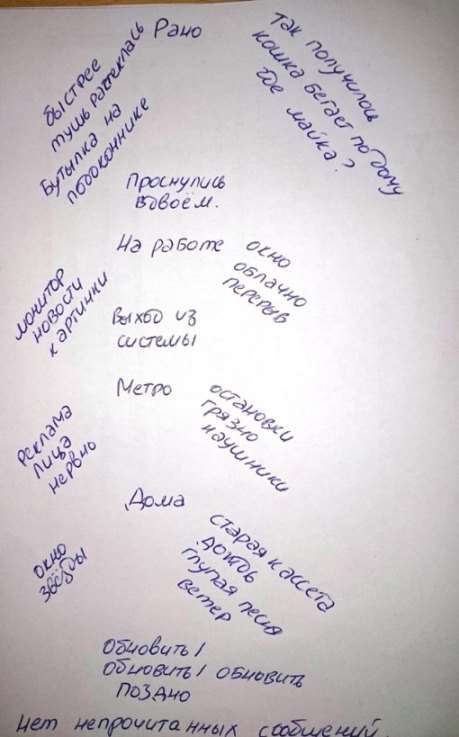 Рано
быстрее
тушь растеклась
Бутылка на
подоконнике
Так получилось
кошка бегает по дому
где майка?
Проснулись
вдвоём.
На работе
окно
облачно
перерыв
монитор
новости
картинки
Выход из
системы
Метро
остановки
грязно
наушники
реклама
лица
нервно
Дома
старая кассета
дождь
глупая песня
ветер
окно
звёзды
Обновить/
Обновить/ обновить
поздно
нет непрочитанных сообщений.